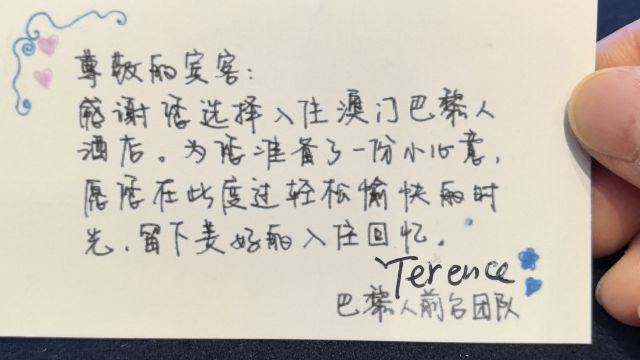 尊敬的宾客：
感谢您选择入住澳门巴黎人
酒店。为您准备了一份小心意，
愿您在此度过轻松愉快的时
光，留下美好的入住回忆。
Terence
巴黎人前台团队